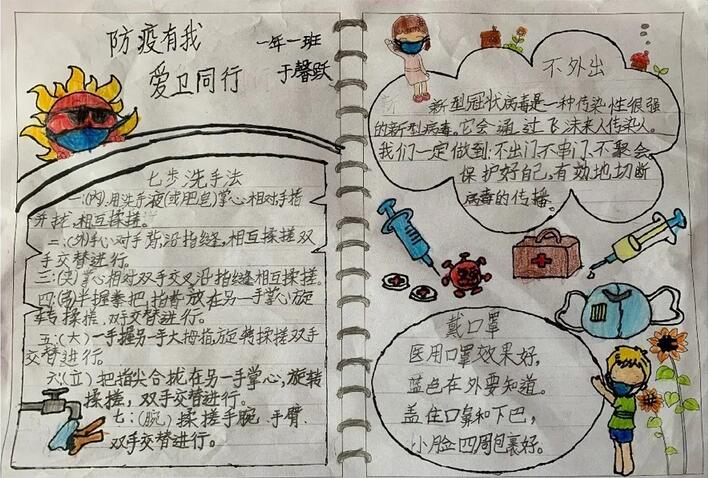 防疫有我
爱卫同行
一年一班
于馨跃
七步洗手法
一:(内)用洗手液(或肥皂)掌心相对手指
并拢,相互揉搓。
二:(外)手心对手背沿指缝,相互揉搓双
手交替进行。
三:(夹)掌心相对双手交叉沿指缝相互揉搓。
四(弓)半握拳把,指背放在另一手掌心旋
转揉搓,双手交替进行。
五:(大)一手握另一手大拇指旋转揉搓双手
交替进行。
六(立)把指尖合拢在另一手掌心,旋转
揉搓,双手交替进行。
七:(腕)揉搓手腕、手臂、
双手交替进行。
不外出
新型冠状病毒是一种传染性很强
的新型病毒。它会通过飞沫来人传染人。
我们一定做到:不出门、不串门、不聚会,
保护好自己,有效地切断
病毒的传播。
戴口罩
医用口罩效果好,
蓝色在外要知道。
盖住口鼻和下巴,
小脸四周包裹好。